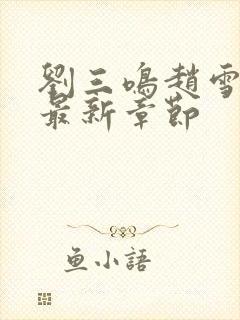 劉三鳴趙雪
最新章節
魚小語